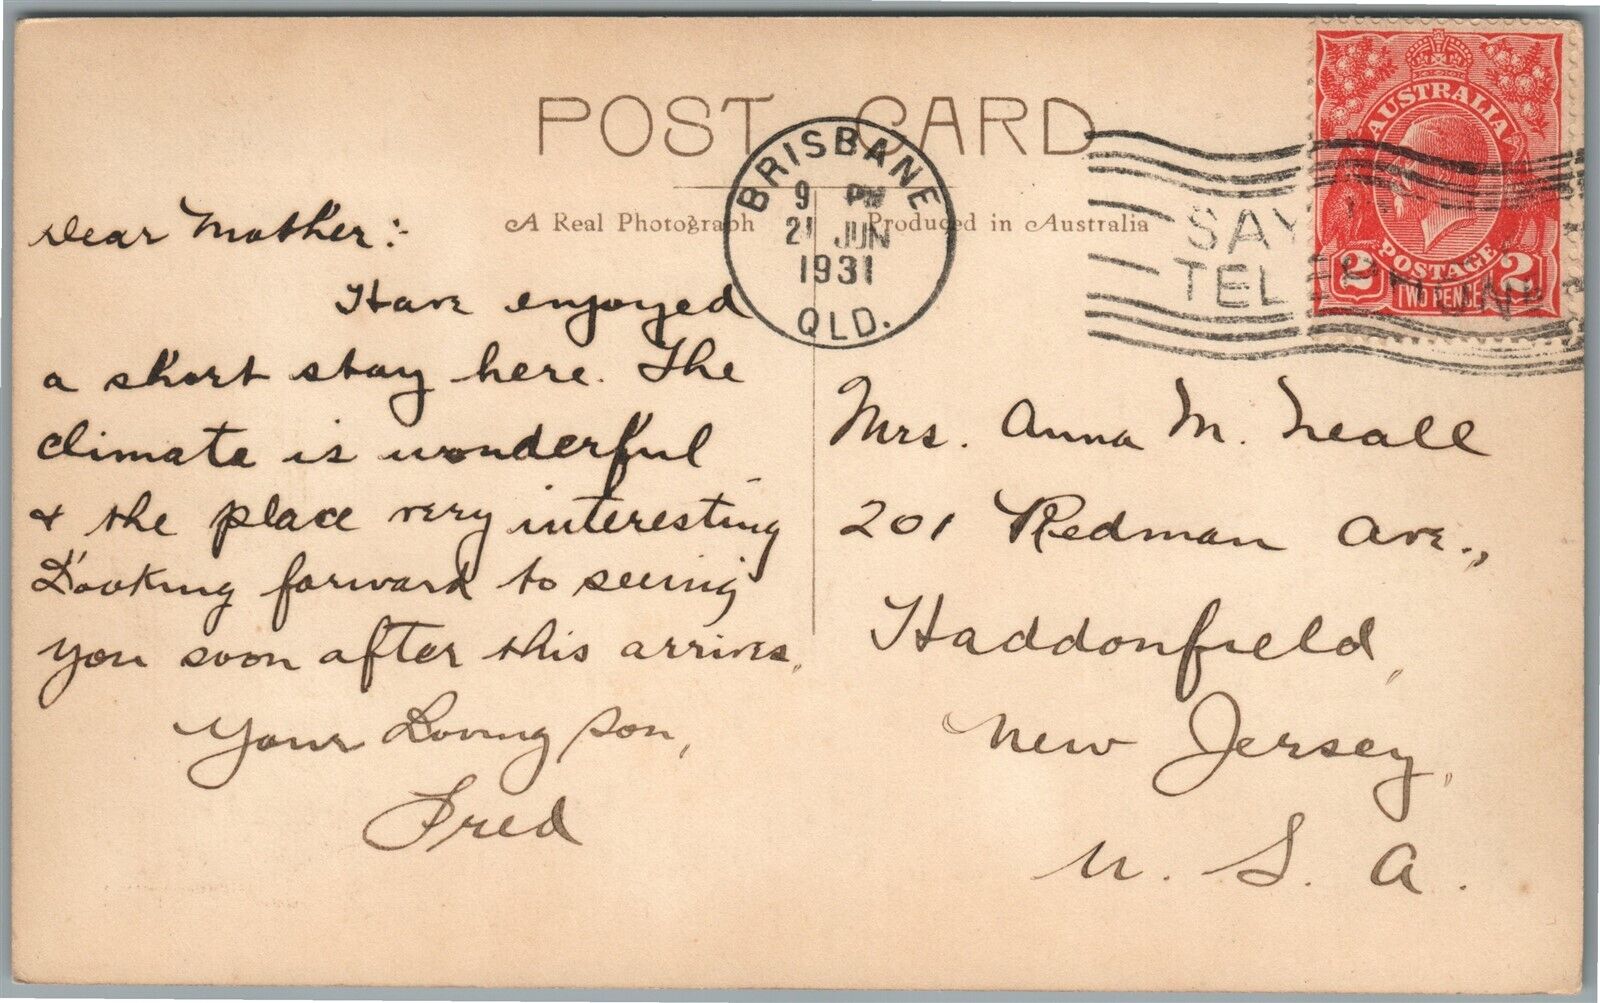 POST CARD
A Real Photograph Produced in Australia
BRISBANE
9 PM
21 JUN
1931
QLD.
SAY
TEL PHONE
AUSTRALIA
POSTAGE
2 2
TWO PENCE
Dear Mother:-
Have enjoyed
a short stay here. The
climate is wonderful
& the place very interesting
Looking forward to seeing
you soon after this arrives.
Your Loving son,
Fred
Mrs. Anna M. Neall
201 Redman Ave.,
Haddonfield,
New Jersey,
U. S. A.